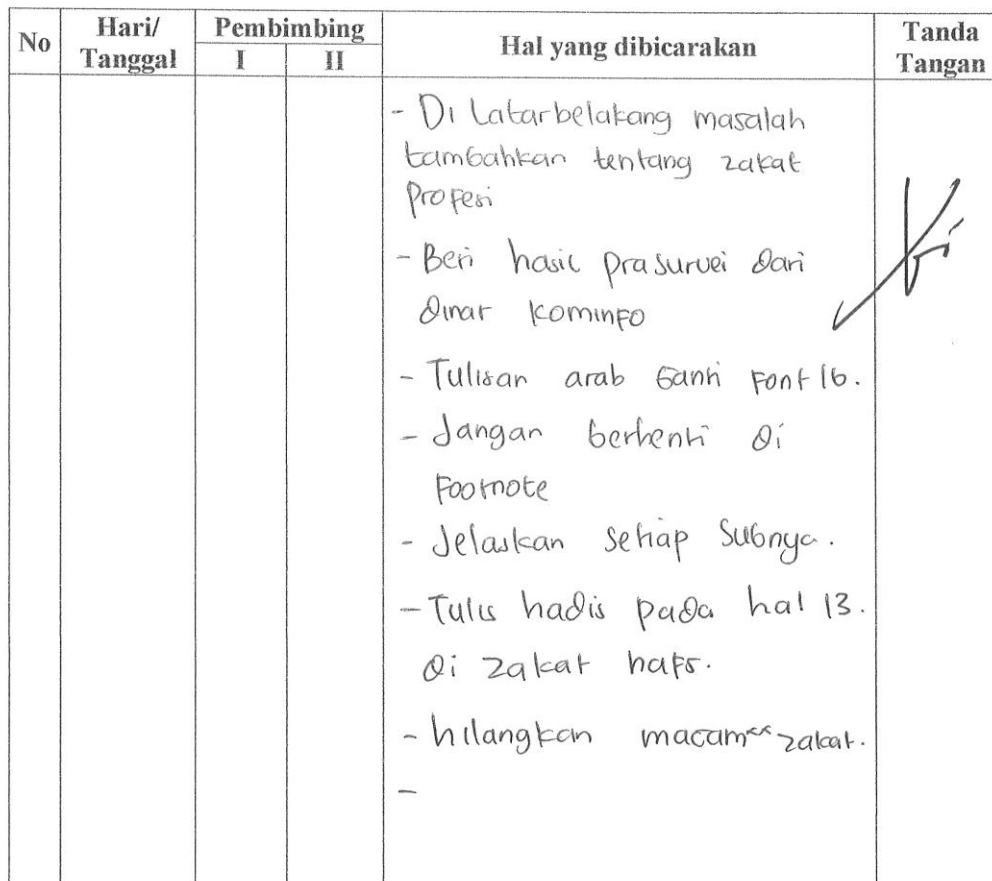 No Hari/ Tanggal Pembimbing I II Hal yang dibicarakan Tanda Tangan
- Di Latarbelakang masalah
tambahkan tentang zakat
Profesi
- Beri hasil prasurvei dari
dinas Kominfo
- Tulisan arab ganti Font 16.
- Jangan berhenti di
Footnote
- Jelaskan setiap Subnya.
- Tulis hadis pada hal 13.
di zakat hafs.
- hilangkan macam" zakat.
-